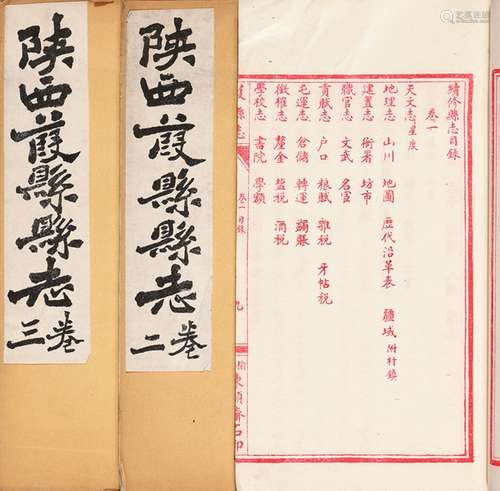 續修縣志目錄
卷一
天文志 星度
地理志 山川 地圖 歷代沿革表 疆域 附村鎮
建置志 衙署 坊市
職官志 文武 名宦
貢賦志 户口 粮賦 雜税 牙帖税
屯運志 倉儲 轉運 蠲賑
徵榷志 釐金 盐税 酒税
學校志 書院 學額
縣志 卷一 目錄 九 榆東順齋石印
陝西葭縣縣志 卷二
陝西葭縣縣志 卷三